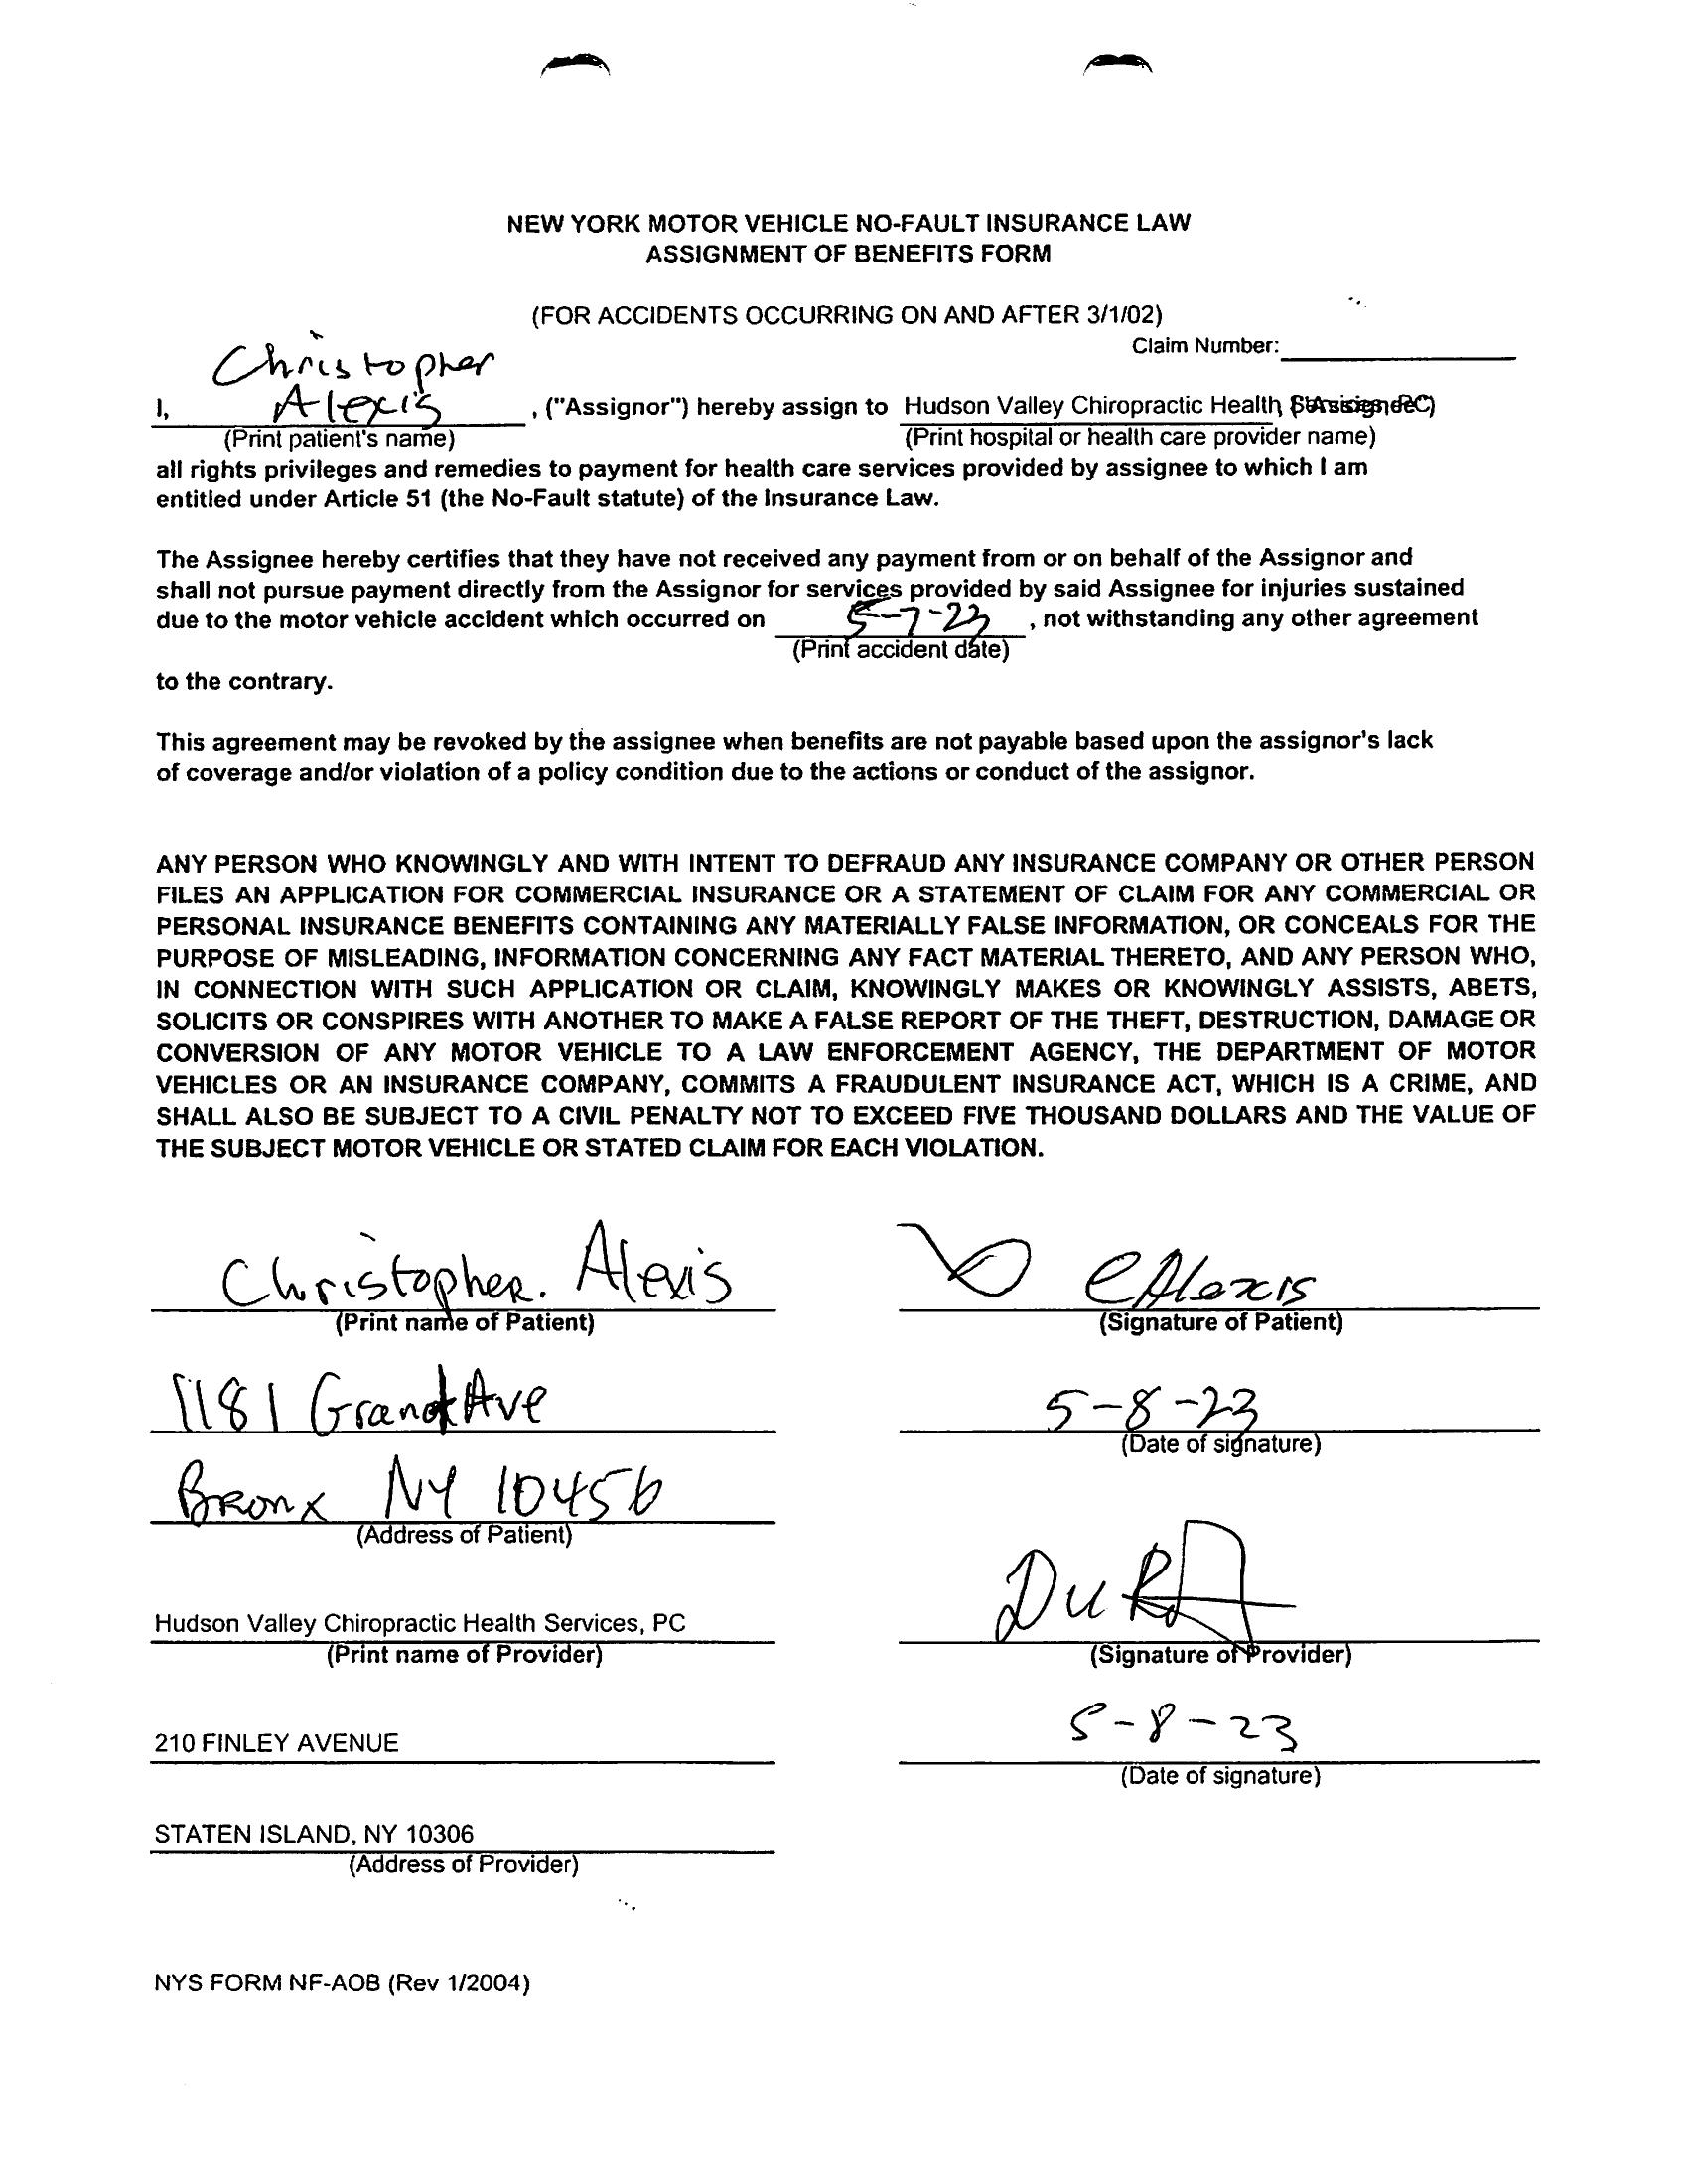 NEW YORK MOTOR VEHICLE NO-FAULT INSURANCE LAW
ASSIGNMENT OF BENEFITS FORM
(FOR ACCIDENTS OCCURRING ON AND AFTER 3/1/02)
Claim Number:
Christopher
I, Alexis, ("Assignor") hereby assign to Hudson Valley Chiropractic Health Services, PC ("Assignee")
(Print patient's name) (Print hospital or health care provider name)
all rights privileges and remedies to payment for health care services provided by assignee to which I am
entitled under Article 51 (the No-Fault statute) of the Insurance Law.
The Assignee hereby certifies that they have not received any payment from or on behalf of the Assignor and
shall not pursue payment directly from the Assignor for services provided by said Assignee for injuries sustained
due to the motor vehicle accident which occurred on 5-7-23, not withstanding any other agreement
(Print accident date)
to the contrary.
This agreement may be revoked by the assignee when benefits are not payable based upon the assignor's lack
of coverage and/or violation of a policy condition due to the actions or conduct of the assignor.
ANY PERSON WHO KNOWINGLY AND WITH INTENT TO DEFRAUD ANY INSURANCE COMPANY OR OTHER PERSON
FILES AN APPLICATION FOR COMMERCIAL INSURANCE OR A STATEMENT OF CLAIM FOR ANY COMMERCIAL OR
PERSONAL INSURANCE BENEFITS CONTAINING ANY MATERIALLY FALSE INFORMATION, OR CONCEALS FOR THE
PURPOSE OF MISLEADING, INFORMATION CONCERNING ANY FACT MATERIAL THERETO, AND ANY PERSON WHO,
IN CONNECTION WITH SUCH APPLICATION OR CLAIM, KNOWINGLY MAKES OR KNOWINGLY ASSISTS, ABETS,
SOLICITS OR CONSPIRES WITH ANOTHER TO MAKE A FALSE REPORT OF THE THEFT, DESTRUCTION, DAMAGE OR
CONVERSION OF ANY MOTOR VEHICLE TO A LAW ENFORCEMENT AGENCY, THE DEPARTMENT OF MOTOR
VEHICLES OR AN INSURANCE COMPANY, COMMITS A FRAUDULENT INSURANCE ACT, WHICH IS A CRIME, AND
SHALL ALSO BE SUBJECT TO A CIVIL PENALTY NOT TO EXCEED FIVE THOUSAND DOLLARS AND THE VALUE OF
THE SUBJECT MOTOR VEHICLE OR STATED CLAIM FOR EACH VIOLATION.
Christopher. Alexis CAlexis
(Print name of Patient) (Signature of Patient)
1181 Grand Ave 5-8-23
(Date of signature)
Bronx NY 10456
(Address of Patient)
Hudson Valley Chiropractic Health Services, PC
(Print name of Provider) (Signature of Provider)
5-8-23
210 FINLEY AVENUE
(Date of signature)
STATEN ISLAND, NY 10306
(Address of Provider)
NYS FORM NF-AOB (Rev 1/2004)